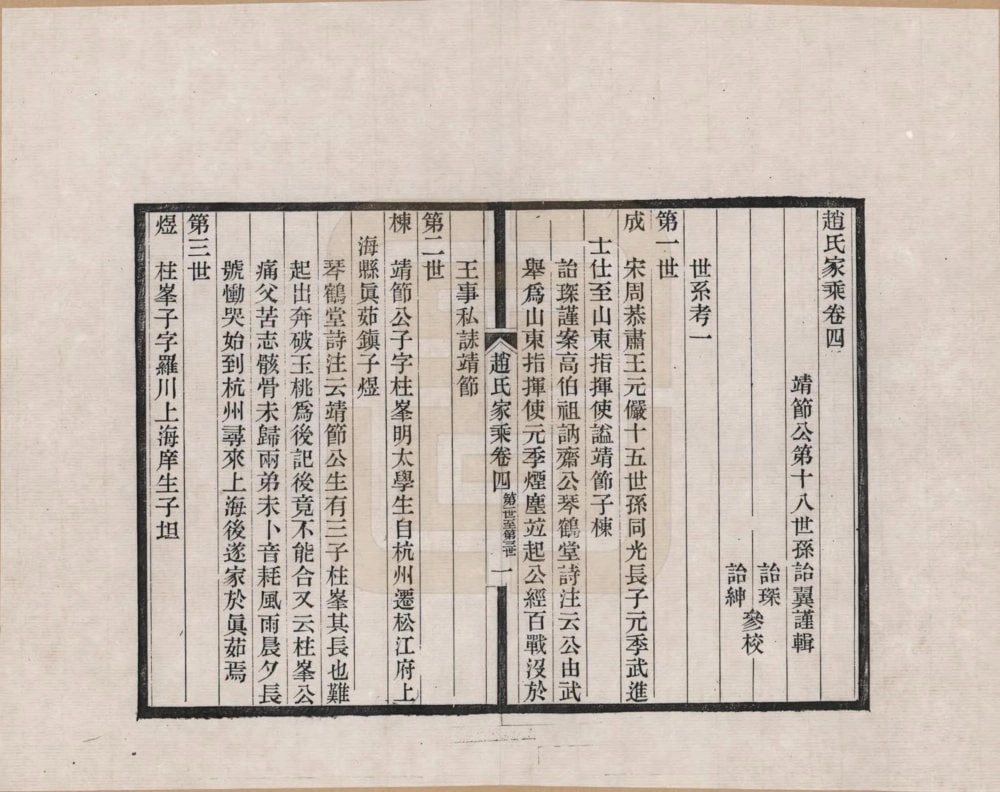 趙氏家乘卷四
靖節公第十八世孫詒翼謹輯
詒琛
詒紳
參校
世系考一
第一世
成 宋周恭肅王元儼十五世孫同光長子元季武進
士仕至山東指揮使謚靖節子棟
詒琛謹案高伯祖訥齋公琴鶴堂詩注云公由武
舉爲山東指揮使元季煙塵竝起公經百戰沒於
趙氏家乘卷四 第一世至第三世 一
王事私誄靖節
第二世
棟 靖節公子字柱峯明太學生自杭州遷松江府上
海縣眞茹鎭子煜
琴鶴堂詩注云靖節公生有三子柱峯其長也難
起出奔破玉桃爲後記後竟不能合又云柱峯公
痛父苦志骸骨未歸兩弟未卜音耗風雨晨夕長
號慟哭始到杭州尋來上海後遂家於眞茹焉
第三世
煜 柱峯子字羅川上海庠生子坦